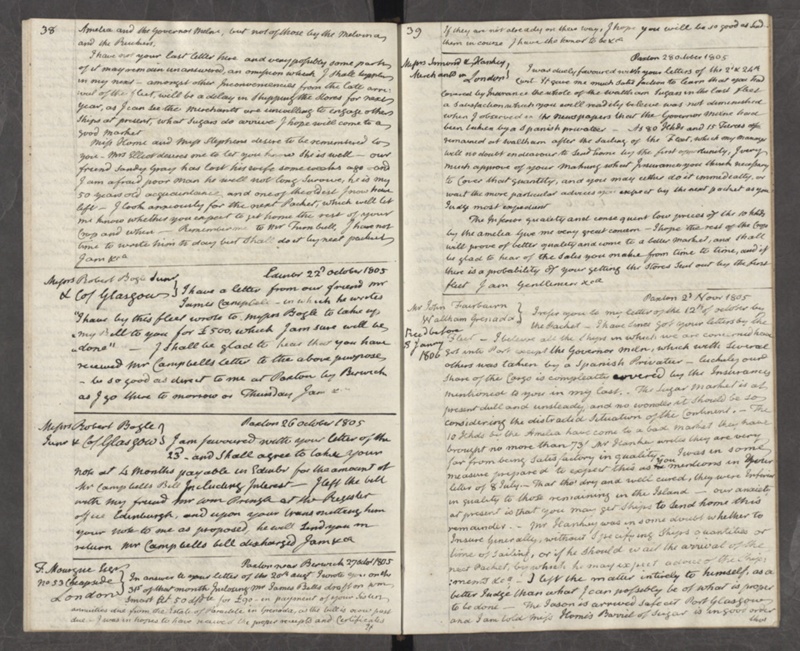 38
Amelia and the Governor Milne, but not of those by the Melvina
and the Reuben.
I have not your last letter here and very possibly some parts
of it may remain unanswered, an omission which I shall supply
in my next - amongst other Inconveniences from the late arri-
val of the Fleet, will be a delay in shipping the Stores for next
year, as I can see the Merchants are unwilling to engage other
Ships at present, what Sugars do arrive I hope will come to a
good market
Miss Home and Miss Stephens desire to be remembered to
you. Mrs Elliot desires me to let you know She is well - our
friend Sandy Gray has lost his wife some weeks ago - and
I am afraid poor man he will not long Survive, he is my
50 years old acquaintance, and one of the oldest I now have
left - I look anxiously for the next Packet, which will let
me know whether you expect to get home the rest of your
Crop and when - Remember me to Mr Turnbull, I have not
time to write him to day but shall do it by next packet
I am &ca
Edinbr 22d October 1805
Messrs Robert Bogle Junr
& Co/ Glasgow
I have a letter from our friend Mr
James Campbell - in which he writes
"I have by this fleet wrote to Messrs Bogle to take up
"my Bill to you for £500, which I am sure will be
"done" - I shall be glad to hear that you have
received Mr Campbells letter to the above purpose
- be so good as direct to me at Paxton by Berwick
as I go there to morrow or Thursday I am &a
Paxton 26 October 1805
Messrs Robert Bogle
Junr & Co/ Glasgow
I am favoured with your letter of the
23d and shall agree to take your
note at 4 Months payable in Edinbr for the amount of
Mr Campbells Bill Including Interest - I left the bill
with my friend Mr Wm Pringle at the Register
office Edinburgh, and upon your transmitting him
your note to me as proposed, he will send you in
return Mr Campbells bill discharged I am &ca
Paxton near Berwick 27 Octr 1805
F. Mourgue Esqr
No 33 Cheapside
London
In answer to your letter of the 20th augt I wrote you on the
31st of that month Inclosing Mr James Bells draft on Wm
annuities due from the Estate of Paraclete in Grenada, as the bill is now past
due I was in hopes to have received the proper receipts and Certificates
39
If they are not already on their way, I hope you will be so good as send
them in course I have the honor to be &ca
Paxton 28 October 1805
Merchants London
I was duly favoured with your letters of the 21st & 24th
Curt. It gave me much Satisfaction to learn that you had
Covered by Insurance the whole of the Waltham Sugars in the last Fleet
a Satisfaction which you will readily believe was not diminished
when I observed in the Newspapers that the Governor Milne had
been taken by a Spanish privateer - As 80 Hhds and 15 Tierces
remained at Waltham after the sailing of the Fleet, which my manager
will no doubt endeavour to send home by the first opportunity, I very
much approve of your making what Insurance you think necessary
to Cover that quantity, and you may either do it immediately, or
wait the more particular advices you expect by the next packet as you
Judge most expedient
The Inferior quality and consequent low prices of the 10 Hhds
by the Amelia give me very great concern - I hope the rest of the Crop
will prove of better quality and come to a better market, and shall
be glad to hear of the Sales you make from time to time, and if
there is a probability of your getting the Stores Sent out by the first
fleet I am Gentlemen &ca
Paxton 2d Novr 1805
Mr John Fairbairn
Waltham Grenada
8 Janry
1806
I refer you to my letter of the 12th of october by
the Packet - I have since got your letters by the
Fleet - I believe all the Ships in which we are concerned have
got into Port except the Governor Milne, which with Several
others was taken by a Spanish Privateer - luckily our
Share of the Cargo is compleatly covered by the Insurances
mentioned to you in my last. - The Sugar Market is at
present dull and unsteady, and no wonder it should be so
considering the distracted Situation of the Continent. - The
10 Hhds by the Amelia have come to a bad market they have
brought no more than 73/ Mr Hankey writes they are very
far from being satisfactory in quality. I was in some
measure prepared to expect this as you mentiond in your
letter of 8 July - that tho' dry and well cured, they were Inferior
in quality to those remaining in the Island - our anxiety
at present is that you may get Ships to Send home this
remainder - Mr Hankey was in some doubt whether to
Insure Generally, without Specifying Ships quantities or
time of Sailing, or if he should wait the arrival of the
next Packet, by which he may expect advice of the Ships
&ca - I left the matter intirely to himself, as a
better Judge than what I can possibly be of what is proper
to be done - The Jason is arrived safe at Port Glasgow
and I am told Miss Home's Barrel of Sugar is in good order